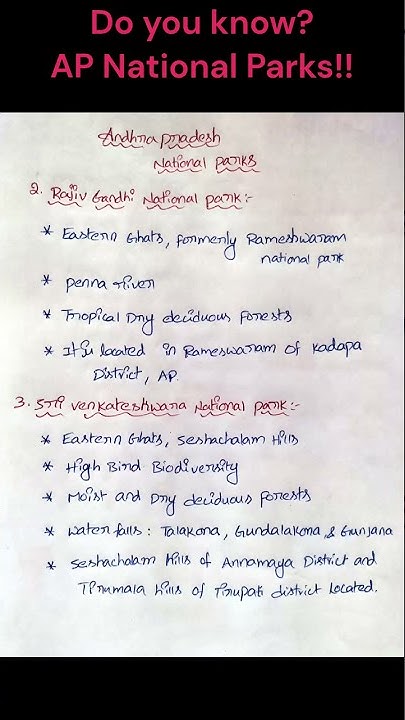 Do you know?
AP National Parks!!
Andhra pradesh
National parks
2. Rajiv Gandhi National park:-
* Eastern Ghats, formerly Rameshwaram
national park
* penna river
* Tropical Dry deciduous forests
* It is located in Rameswaram of Kadapa
District, AP.
3. Sri venkateshwara National park:-
* Eastern Ghats, seshachalam Hills
* High Bird Biodiversity
* Moist and Dry deciduous forests
* water falls: Talakona, Gundalakona, & Gunjana
* seshachalam hills of Annamaya District and
Tirumala hills of Tirupati district Located.